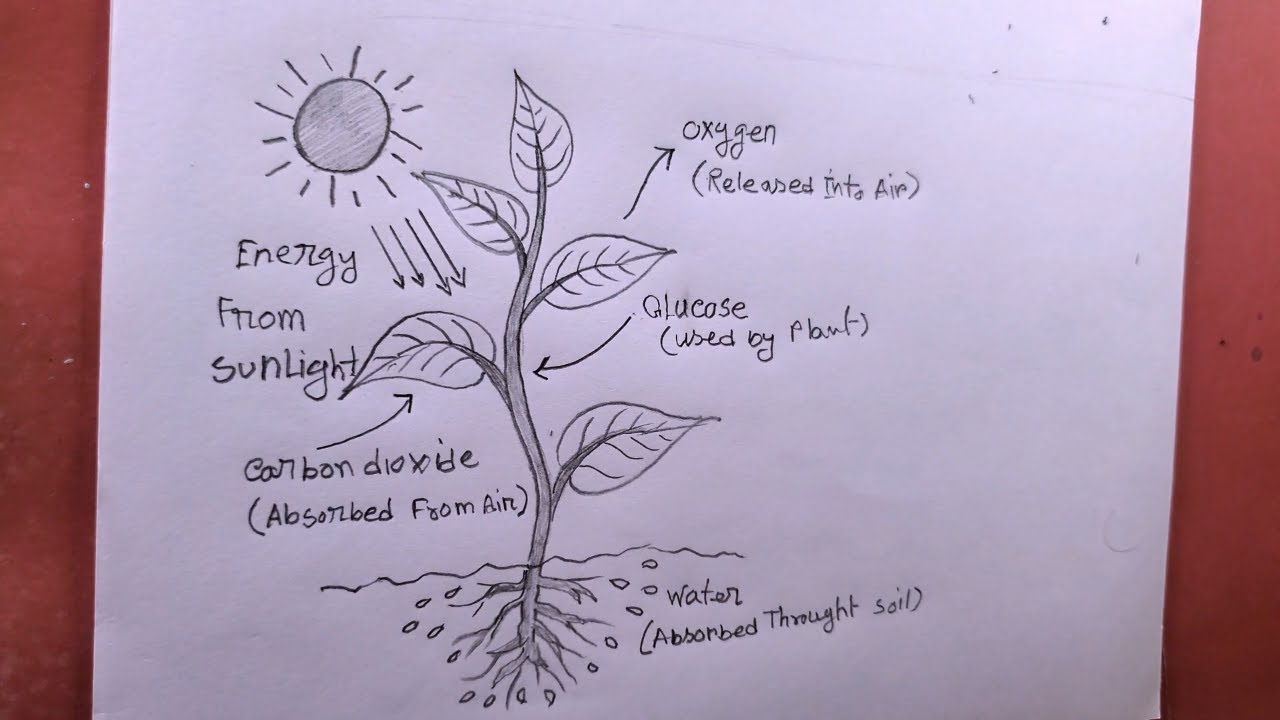 Oxygen
(Released Into Air)
Energy
From
Sunlight
Glucose
(Used by Plant)
Carbon dioxide
(Absorbed From Air)
Water
(Absorbed Throught Soil)